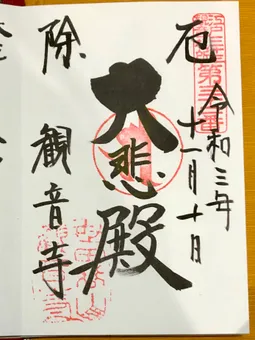 令和三年
十一月十日
厄
大悲殿
除
観音寺